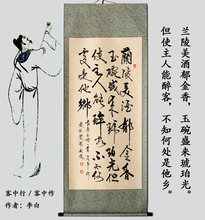 兰陵美酒郁金香，玉碗盛来琥珀光。
但使主人能醉客，不知何处是他乡。
蘭陵美酒郁金香
玉碗盛来琥珀光但
使主人能醉客不知何
處是他鄉
客中行 / 客中作
作者：李白